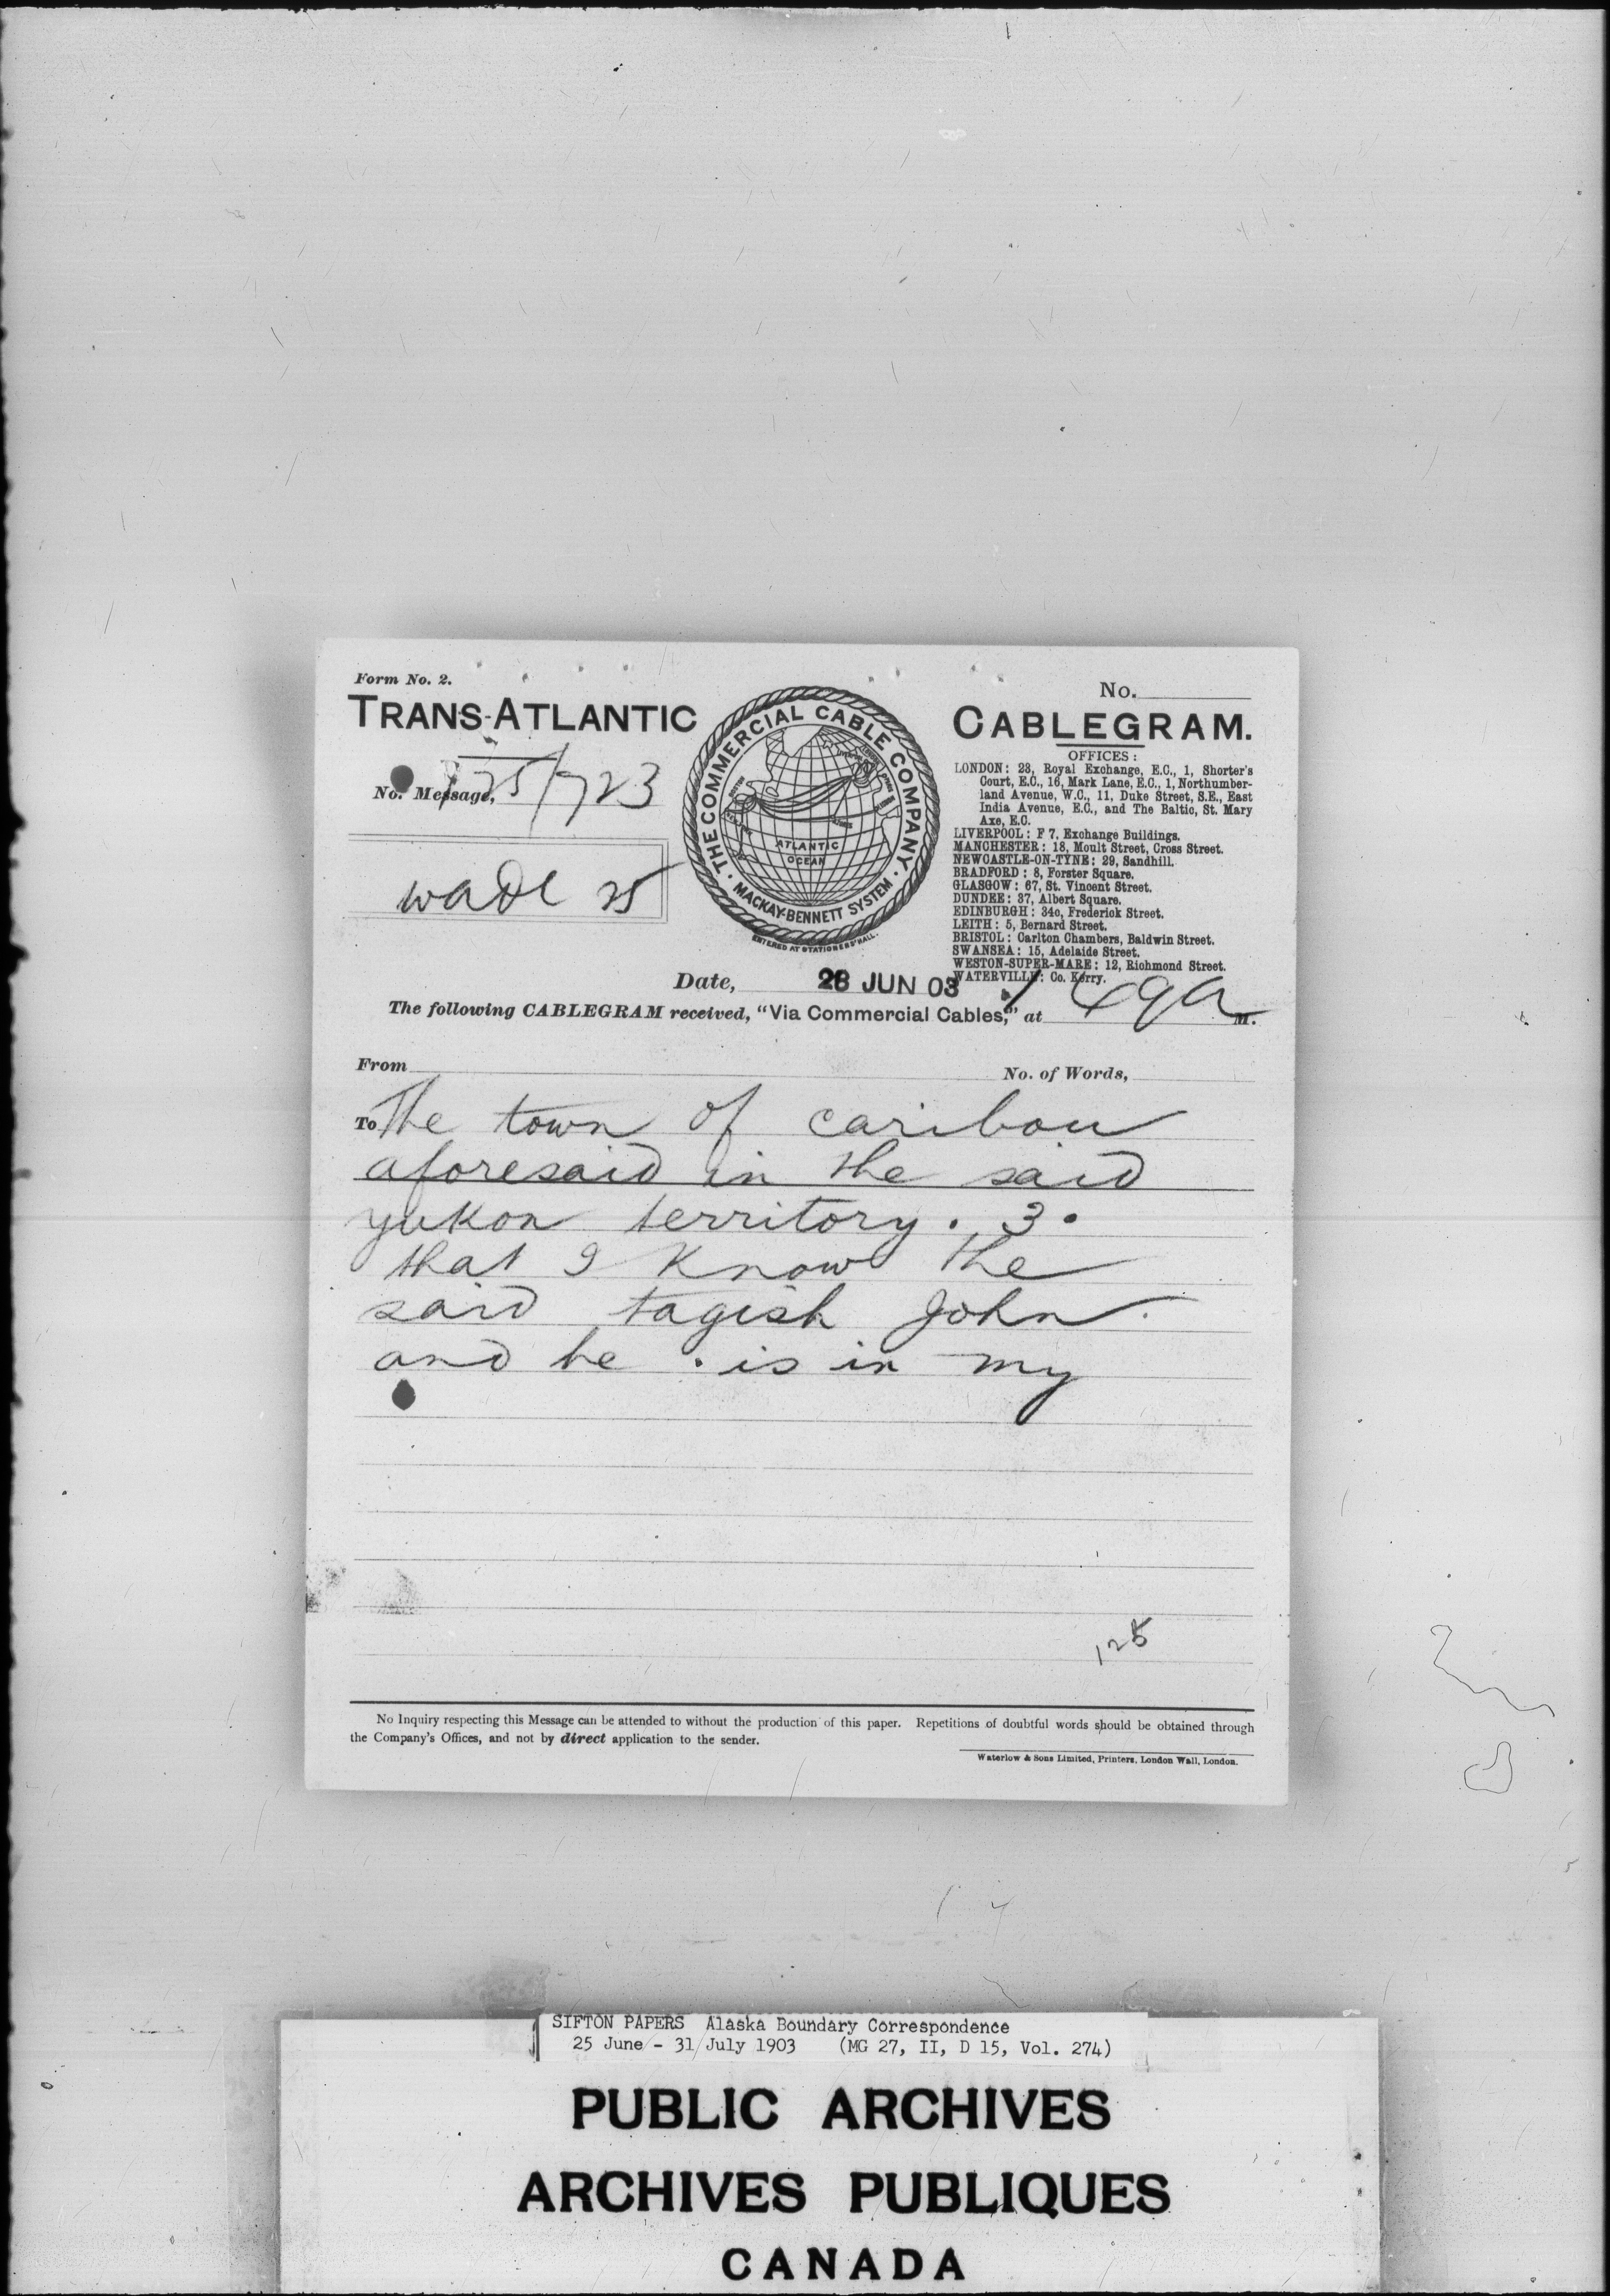 Form No. 2.
No.
TRANS-ATLANTIC
CABLEGRAM.
No. Message, 125/723
wade 25
THE COMMERCIAL CABLE COMPANY
MACKAY-BENNETT SYSTEM
ATLANTIC
OCEAN
ENTERED AT STATIONERS' HALL.
OFFICES:
LONDON: 23, Royal Exchange, E.C., 1, Shorter's
Court, E.C., 16, Mark Lane, E.C., 1, Northumber-
land Avenue, W.C., 11, Duke Street, S.E., East
India Avenue, E.C., and The Baltic, St. Mary
Axe, E.C.
LIVERPOOL: F 7, Exchange Buildings.
MANCHESTER: 18, Moult Street, Cross Street.
NEWCASTLE-ON-TYNE: 29, Sandhill.
BRADFORD: 8, Forster Square.
GLASGOW: 67, St. Vincent Street.
DUNDEE: 37, Albert Square.
EDINBURGH: 34c, Frederick Street.
LEITH: 5, Bernard Street.
BRISTOL: Carlton Chambers, Baldwin Street.
SWANSEA: 15, Adelaide Street.
WESTON-SUPER-MARE: 12, Richmond Street.
WATERVILLE: Co. Kerry.
Date, 28 JUN 03
The following CABLEGRAM received, "Via Commercial Cables," at 1 49a M.
From
No. of Words,
To The town of caribou
aforesaid in the said
yukon territory. 3.
that I know the
said tagish John
and he . is in my
125
No Inquiry respecting this Message can be attended to without the production of this paper. Repetitions of doubtful words should be obtained through
the Company's Offices, and not by direct application to the sender.
Waterlow & Sons Limited, Printers, London Wall, London.
SIFTON PAPERS Alaska Boundary Correspondence
25 June - 31 July 1903 (MG 27, II, D 15, Vol. 274)
PUBLIC ARCHIVES
ARCHIVES PUBLIQUES
CANADA